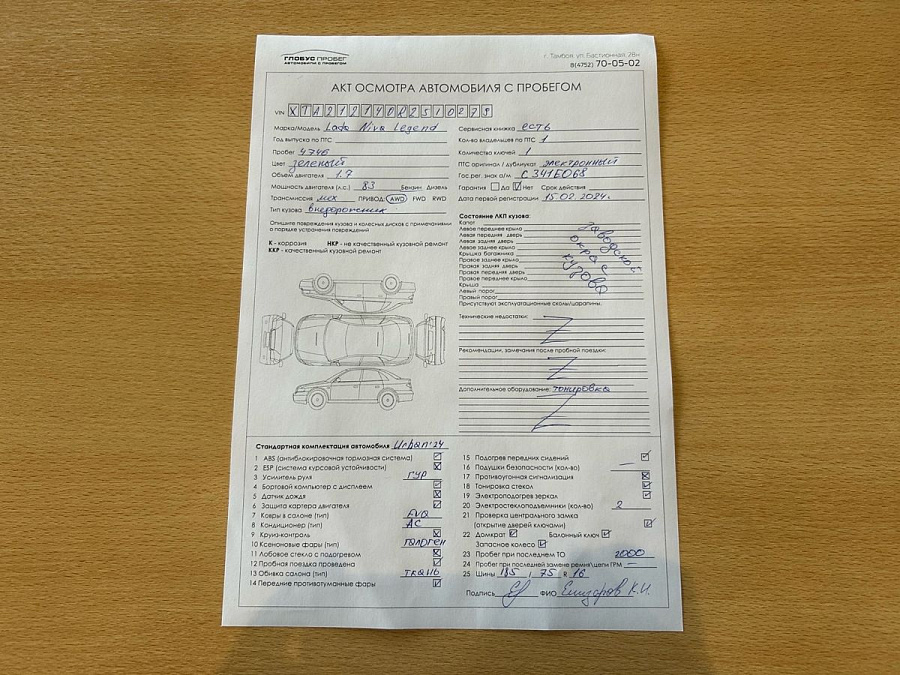 ГЛОБУС ПРОБЕГ
АВТОМОБИЛИ С ПРОБЕГОМ
г. Тамбов, ул. Бастионная, 28н
8(4752) 70-05-02
АКТ ОСМОТРА АВТОМОБИЛЯ С ПРОБЕГОМ
VIN XTA212140R2510279
Марка/Модель Lada Niva Legend
Год выпуска по ПТС
Пробег 4746
Цвет зеленый
Объем двигателя 1.7
Мощность двигателя (л.с.) 83 Бензин Дизель
Трансмиссия мех ПРИВОД: AWD FWD RWD
Тип кузова внедорожник
Опишите повреждения кузова и колесных дисков с примечаниями
о порядке устранения повреждений
К - коррозия НКР - не качественный кузовной ремонт
ККР - качественный кузовной ремонт
Сервисная книжка есть
Кол-во владельцев по ПТС 1
Количество ключей 1
ПТС оригинал / дубликат электронный
Гос.рег. знак а/м С341ЕО68
Гарантия Да Нет Срок действия
Дата первой регистрации 15.02.2024г.
Состояние ЛКП кузова:
Капот
Левое переднее крыло
Левая передняя дверь
Левая задняя дверь
Левое заднее крыло
Крышка багажника
Правое заднее крыло
Правая задняя дверь
Правая передняя дверь
Правое переднее крыло
Крыша
Левый порог
Правый порог
заводской
окрас
кузова
Присутствуют эксплуатационные сколы/царапины.
Технические недостатки:
Z
Рекомендации, замечания после пробной поездки:
Z
Дополнительное оборудование: тонировка
Z
Стандартная комплектация автомобиля Urban'24
1 ABS (антиблокировочная тормозная система)
2 ESP (система курсовой устойчивости)
3 Усилитель руля ГУР
4 Бортовой компьютер с дисплеем
5 Датчик дождя
6 Защита картера двигателя
7 Ковры в салоне (тип) EVA
8 Кондиционер (тип) AC
9 Круиз-контроль
10 Ксеноновые фары (тип) галоген
11 Лобовое стекло с подогревом
12 Пробная поездка проведена
13 Обивка салона (тип) ткань
14 Передние противотуманные фары
15 Подогрев передних сидений
16 Подушки безопасности (кол-во) —
17 Противоугонная сигнализация
18 Тонировка стекол
19 Электроподогрев зеркал
20 Электростеклоподъемники (кол-во) 2
21 Проверка центрального замка
(открытие дверей ключами)
22 Домкрат Балонный ключ
Запасное колесо
23 Пробег при последнем ТО 2000
24 Пробег при последней замене ремня\цепи ГРМ —
25 Шины 185 / 75 R 16
Подпись ФИО К.И.